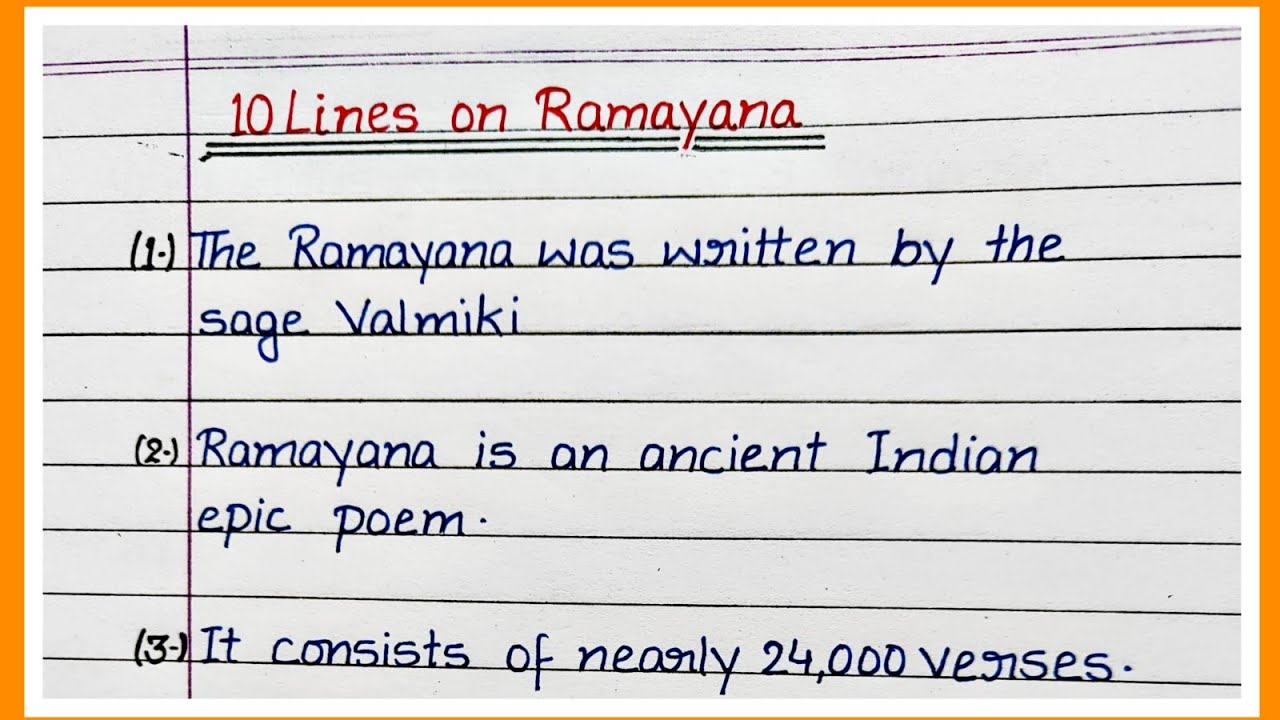 10 Lines on Ramayana
(1.) The Ramayana was written by the
sage Valmiki
(2.) Ramayana is an ancient Indian
epic poem.
(3.) It consists of nearly 24,000 verses.